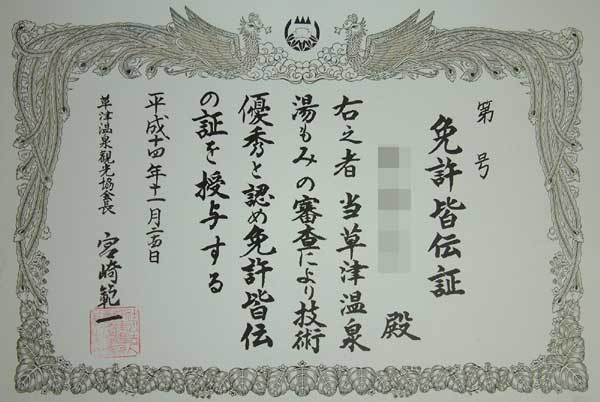 第 号
免許皆伝証
殿
右之者 当草津温泉
湯もみの審査により技術
優秀と認め免許皆伝
の証を授与する
平成十四年十一月二十五日
草津温泉観光協会長
宮崎範一